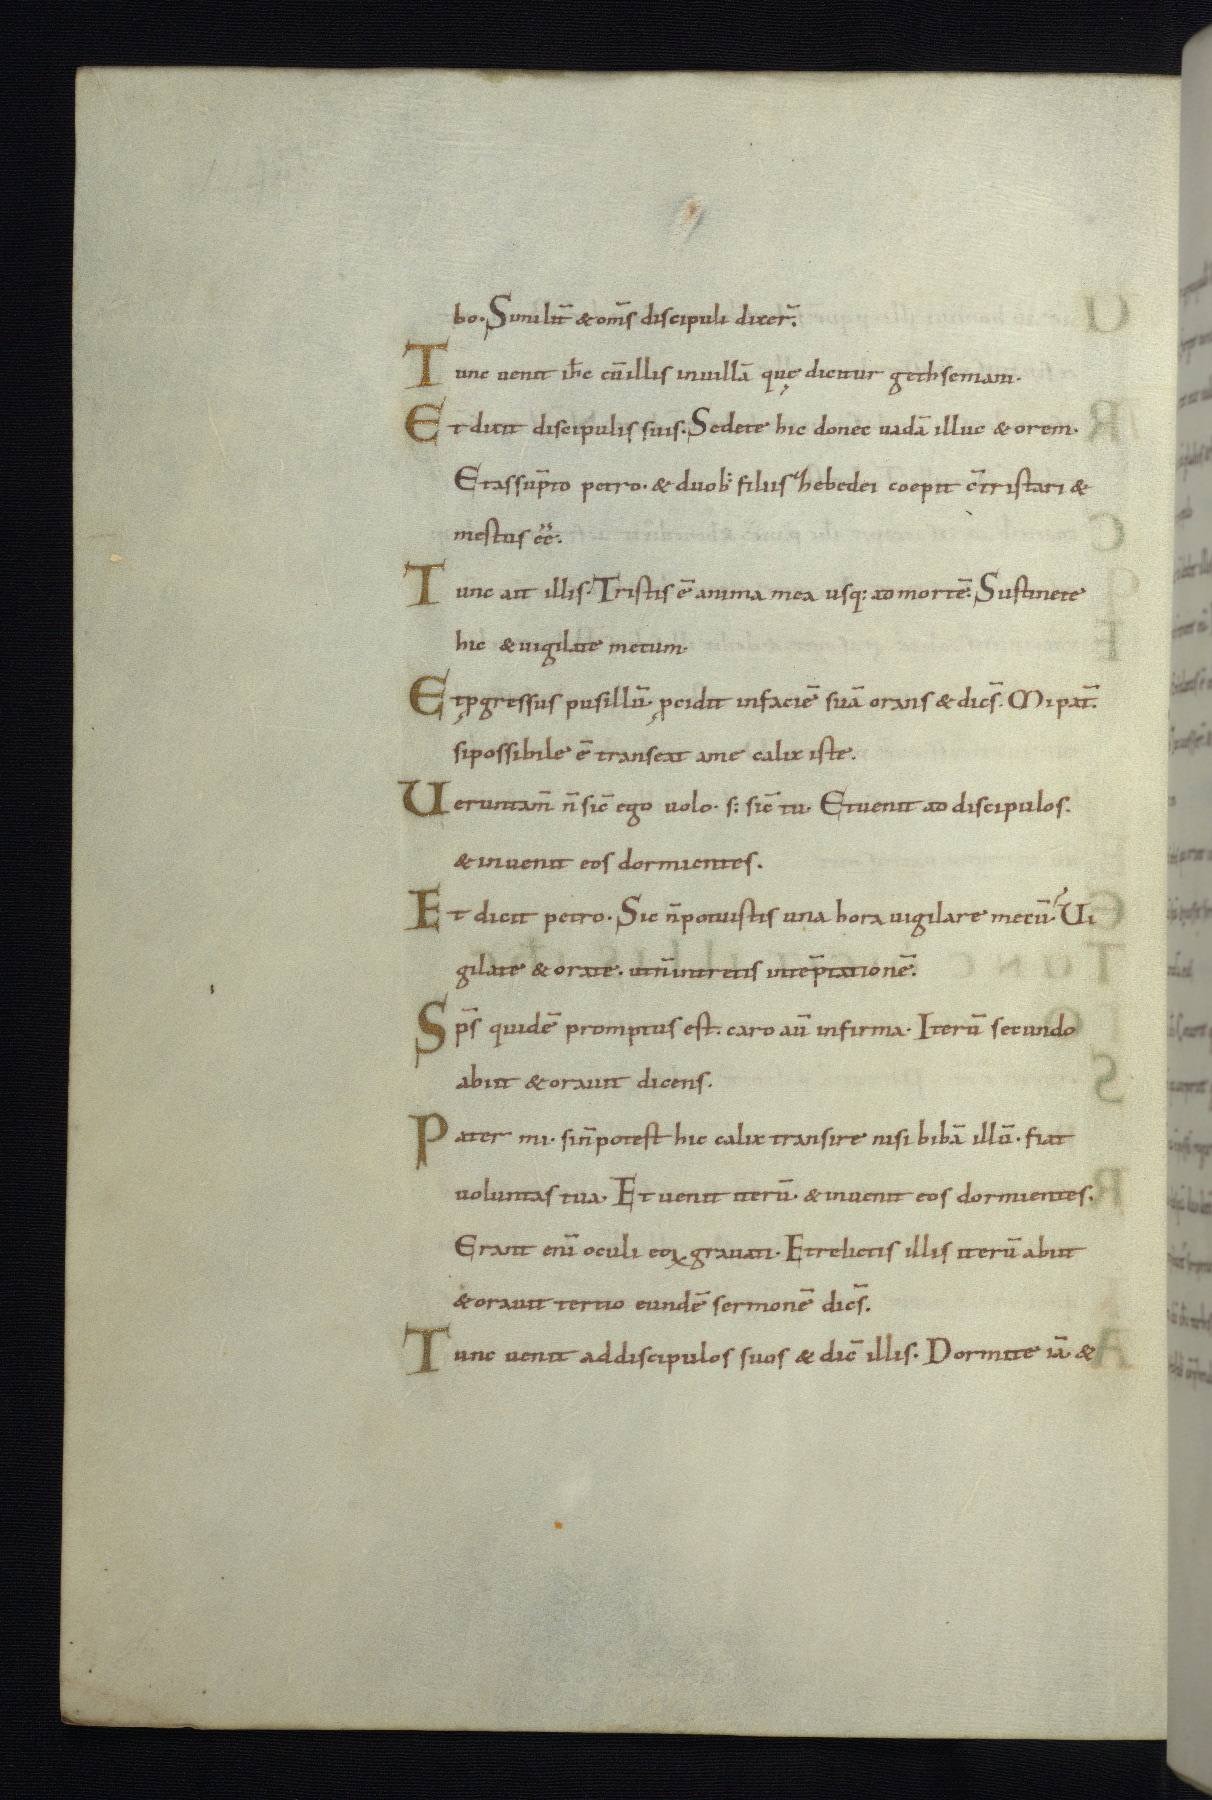 bo. Similit̄ & om̄s discipuli dixer̄.
Tunc uenit ih̄c cū illis in uillā quę dicitur gethsemani.
Et dixit discipulis suis. Sedete hic donec uadā illuc & orem.
Et assūpto petro. & duob; filiis zebedei coepit c̄tristari &
mestus eē.
Tunc ait illis. Tristis ē anima mea usq; ad mortē. Sustinete
hic & uigilate mecum.
Et ꝓgressus pusillū ꝓcidit in faciē suā orans & dic̄s. Mi pat̄.
si possibile ē transeat a me calix iste.
Ueruntam̄ n̄ sic̄ ego uolo. s; sic̄ tu. Et uenit ad discipulos.
& inuenit eos dormientes.
Et dicit petro. Sic n̄ potuistis una hora uigilare mecū. Ui
gilate & orate. ut n̄ intretis in tēptationē.
Sp̄s quidē promptus est. caro aū infirma. Iterū secundo
abiit & orauit dicens.
Pater mi. si n̄ potest hic calix transire nisi bibā illū. fiat
uoluntas tua. Et uenit iterū. & inuenit eos dormientes.
Erant enī oculi eoꝝ grauati. Et relictis illis iterū abiit
& orauit tertio eundē sermonē dic̄s.
Tunc uenit ad discipulos suos & dic̄ illis. Dormite iā &